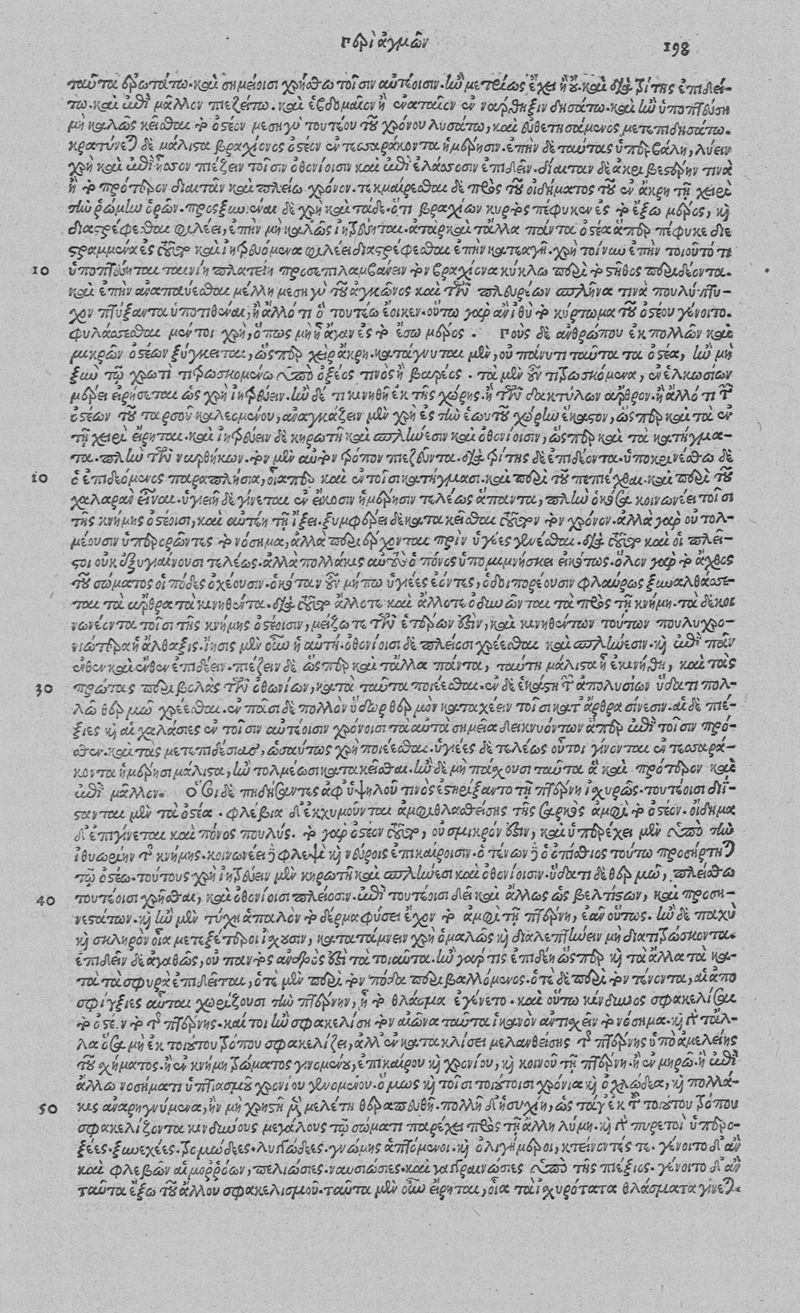 Περὶ ἀγμῶν
198
ταῦτα ἐρωτάτω. καὶ σημείοισι χρήσθω τοῖσιν αὐτέοισιν. ἢν μετρίως ἔχει ἢ οὔ. καὶ διὰ τρίτης ἐπιδεί-
τω. καὶ ἐπὶ μᾶλλον πιεζείτω. καὶ ἑβδομαῖον ἢ ἐναταῖον ἐν νάρθηξιν δησάτω. καὶ ἢν ὑποπτεύση
μὴ καλῶς κεῖσθαι τὸ ὀστέον μεσηγὺ τουτέου τοῦ χρόνου λυσάτω, καὶ εὐθετησάμενος μετεπιδησάτω.
κρατύνεται δὲ μάλιστα βραχίονος ὀστέον ἐν τεσσαράκοντα ἡμέρησιν. ἐπὴν δὲ ταύτας ὑπερβάλη, λύειν
χρὴ καὶ ἐπὶ ἧσσον πιέζειν τοῖσιν ὀθονίοισιν καὶ ἐπὶ ἐλάσσοσιν ἐπιδεῖν. δίαιταν δὲ ἀκριβεστέρην τινὰ
ἢ τὸ πρότερον διαιτᾶν καὶ πλείω χρόνον. τεκμαίρεσθαι δὲ πρὸς τοῦ οἰδήματος τοῦ ἐν ἄκρη τῆ χειρὶ
τὴν ῥώμην ὁρῶν. προσξυνιέναι δὲ χρὴ καὶ τάδε. ὅτι βραχίων κυρτὸς πέφυκεν ἐς τὸ ἔξω μέρος, κὴ
διαστρέφεσθαι φιλέει, ἐπὴν μὴ καλῶς ἰητρεύηται. ἀτὰρ καὶ τἄλλα πάντα ὀστέα ἅπερ πέφυκε διε
στραμμένα ἐς τοῦτο καὶ ἰητρευόμενα φιλέει διαστρέφεσθαι ἐπὴν καταγῆ. χρὴ τοίνυν ἐπὴν τοιοῦτό τι
10 ὑποπτεύηται ταινίη πλατείη προσεπιλαμβάνειν τὸν βραχίονα κύκλω περὶ τὸ στῆθος περιδέοντα.
καὶ ἐπὴν ἀναπαύεσθαι μέλλη μεσηγὺ τοῦ ἀγκῶνος καὶ τῶν πλευρέων σπλῆνά τινα πουλύπτυ-
χον πτύξαντα ὑποτιθέναι, ἢ ἄλλό τι ὃ τουτέω ἔοικεν. οὕτω γὰρ ἂν ἰθὺ τὸ κύρτωμα τοῦ ὀστέου γένοιτο.
φυλάσσεσθαι μέντοι χρὴ, ὅπως μὴ ἦ ἄγαν ἐς τὸ ἔσω μέρος. Ποὺς δὲ ἀνθρώπου ἐκ πολλῶν καὶ
μικρῶν ὀστέων ξύγκειται, ὥσπερ χεὶρ ἄκρη. κατάγνυται μὲν, οὐ πάνυ τι ταῦτα τὰ ὀστέα, ἢν μὴ
ξὺν τῶ χρωτὶ τιτρωσκομένω ὑπὸ ὀξέος τινὸς ἢ βαρέος. τὰ μὲν οὖν τιτρωσκόμενα, ἐν ἑλκωσίων
μέρει εἰρήσεται ὡς χρὴ ἰητρεύειν. ἢν δέ τι κινηθῆ ἐκ τῆς χώρης. ἢ τῶν δακτύλων ἄρθρον. ἢ ἄλλό τι τῶν
ὀστέων τοῦ ταρσοῦ καλεομένου, ἀναγκάζειν μὲν χρὴ ἐς τὴν ἑωυτοῦ χώρην ἕκαστον, ὥσπερ καὶ τὰ ἐν
τῆ χειρὶ εἴρηται. καὶ ἰητρεύειν δὲ κηρωτῆ καὶ σπλήνεσιν καὶ ὀθονίοισιν, ὥσπερ καὶ τὰ κατήγμα-
τα. πλὴν τῶν ναρθήκων. τὸν μὲν αὐτὸν τρόπον πιεζεῦντα. διὰ τρίτης δὲ ἐπιδέοντα. ὑποκρινέσθω δὲ
20 ὁ ἐπιδεόμενος παραπλήσια, οἷάπερ καὶ ἐν τοῖσι κατήγμασι. καὶ περὶ τοῦ πεπιέχθαι. καὶ περὶ τοῦ
χαλαρὰ εἶναι. ὑγιέη δὲ γίνεται ἐν εἴκοσιν ἡμέρησιν τελέως ἅπαντα, πλὴν ὁκόσα κοινωνέει τοῖσι
τῆς κνήμης ὀστέοισι, καὶ αὐτέη τῆ ἴξει. ξυμφέρει δὲ κατακεῖσθαι τοῦτον τὸν χρόνον. ἀλλὰ γὰρ οὐ τολ-
μέουσιν ὑπερορῶντες τὸ νόσημα, ἀλλὰ περιέρχονται πρὶν ὑγιέες γενέσθαι. διὰ τοῦτο καὶ οἱ πλεῖ-
στοι οὐκ ἐξυγιαίνουσι τελέως. ἀλλὰ πολλάκις αὐτοὺς ὁ πόνος ὑπομιμνήσκει εἰκότως. ὅλον γὰρ τὸ ἄχθος
τοῦ σώματος οἱ πόδες ὀχέουσιν. ὁκόταν οὖν μήπω ὑγιέες ἐόντες, ὁδοιπορέουσιν φλαύρως ξυναλθάσσε-
ται τὰ ἄρθρα τὰ κινηθέντα. διὰ τοῦτο ἄλλοτε καὶ ἄλλοτε ὀδυνῶνται τὰ πρὸς τῆ κνήμη. τὰ δὲ κοι
νωνέοντα τοῖσι τῆς κνήμης ὀστέοισιν, μείζω τε τῶν ἑτέρων ἐστὶν, καὶ κινηθέντων τούτων πολυχρο-
νιωτέρα ἡ ἄλθαξις. ἴησις μὲν οὖν ἡ αὐτή. ὀθονίοισι δὲ πλείοσι χρέεσθαι καὶ σπλήνεσιν. κὴ ἐπὶ πᾶν
ἔνθεν καὶ ἔνθεν ἐπιδέειν. πιέζειν δὲ ὥσπερ καὶ τἄλλα πάντα, ταύτη μάλιστα ἧ ἐκινήθη, καὶ τὰς
30 πρώτας περιβολὰς τῶν ὀθονίων, κατὰ ταῦτα ποιέεσθαι. ἐν δὲ ἑκάστη τῶν ἀπολυσίων ὕδατι πολ-
λῶ θερμῶ χρέεσθαι. ἐν πᾶσι δὲ πολλὸν ὕδωρ θερμὸν καταχέειν τοῖσι κατ᾽ ἄρθρα σίνεσιν. αἱ δὲ πιέ-
ξιες κὴ αἱ χαλάσιες ἐν τοῖσιν αὐτέοισιν χρόνοισι τὰ αὐτὰ σημεῖα δεικνυόντων ἅπερ ἐπὶ τοῖσιν πρό-
σθεν. καὶ τὰς μετεπιδέσιας, ὡσαύτως χρὴ ποιέεσθαι. ὑγιέες δὲ τελέως οὗτοι γίνονται ἐν τεσσαρά-
κοντα ἡμέρησι μάλιστα, ἢν τολμέωσι κατακεῖσθαι. ἢν δὲ μὴ πάσχουσι ταῦτα ἃ καὶ πρότερον καὶ
ἐπὶ μᾶλλον. Ὅσοι δὲ πηδήσαντες ἀφ᾽ ὑψηλοῦ τινὸς ἐστηρίξαντο τῆ πτέρνη ἰσχυρῶς. τουτέοισι διΐ-
σταται μὲν τὰ ὀστέα. φλέβια δ᾽ ἐκχυμοῦνται ἀμφιθλασθείσης τῆς σαρκὸς ἀμφὶ τὸ ὀστέον. οἴδημα
δ᾽ ἐπιγίνεται καὶ πόνος πουλύς. τὸ γὰρ ὀστέον τοῦτο, οὐ σμικρόν ἐστιν, καὶ ὑπερέχει μὲν ὑπὸ τὴν
ἰθυωρίην τῆς κνήμης. κοινωνέει δὲ φλεψὶ κὴ νεύροις ἐπικαίροισιν. ὁ τένων δὲ ὁ ὀπίσθιος τούτω προσήρτηται
τῶ ὀστέω. τούτους χρὴ ἰητρεύειν μὲν κηρωτῆ καὶ σπλήνεσι καὶ ὀθονίοισιν. ὕδατι δὲ θερμῶ, πλείστω
40 τουτέοισι χρῆσθαι, καὶ ὀθονίοισι πλείοσιν. ἐπὶ τουτέοισι δεῖ καὶ ἄλλως ὡς βελτίστων, καὶ προση-
νεστάτων. κὴ ἢν μὲν τύχη ἁπαλὸν τὸ δέρμα φύσει ἔχον τὸ ἀμφὶ τῆ πτέρνη, ἐᾶν οὕτως. ἢν δὲ παχὺ
κὴ σκληρὸν οἷα μετεξέτεροι ἴσχουσιν, κατατάμνειν χρὴ ὁμαλῶς κὴ διαλεπτύνειν μὴ διατιτρώσκοντα.
ἐπιδεῖν δὲ ἀγαθῶς, οὐ παντὸς ἀνδρὸς ἐστὶ τὰ τοιαῦτα. ἢν γάρ τις ἐπιδέη ὥσπερ κὴ τὰ ἄλλα τὰ κα-
τὰ τὰ σφυρὰ ἐπιδέεται, ὁτὲ μὲν περὶ τὸν πόδα περιβαλλόμενος. ὁτὲ δὲ περὶ τὸν τένοντα, αἱ ἀπο
σφίγξιες αὗται χωρίζουσι τὴν πτέρνην, ἧ τὸ φλάσμα ἐγένετο. καὶ οὕτω κίνδυνος σφακελίσαι
τὸ ὀστέον τὸ τῆς πτέρνης. καί τοι ἢν σφακελίση τὸν αἰῶνα ταῦτα ἱκανὸν ἀντισχεῖν τὸ νόσημα. κὴ γὰρ τἄλ-
λα ὅσα μὴ ἐκ τοιούτου τρόπου σφακελίζει, ἀλλ᾽ ἐν κατακλίσει μελανθείσης τῆς πτέρνης ὑπὸ ἀμελείης
τοῦ σχήματος. ἢ ἐν κνήμη τρώματος γινομένου, ἐπικαίρου κὴ χρονίου, κὴ κοινοῦ τῆ πτέρνη. ἢ ἐν μηρῶ. ἢ ἐπὶ
ἄλλω νοσήματι ὑπτιασμοῦ χρονίου γενομένου. ὅμως κὴ τοῖσι τοιούτοισι χρόνια κὴ ὀχλώδεα, κὴ πολλά-
50 κις ἀναρηγνύμενα, ἢν μὴ χρηστῆ μὲν μελέτη θεραπευθῆ. πολλῆ δ᾽ ἡσυχίη, ὡς τά γ᾽ ἐκ τοῦ τοιούτου τρόπου
σφακελίζοντα κινδύνους μεγάλους τῶ σώματι παρέχει πρὸς τῆ ἄλλη λύμη. κὴ γὰρ πυρετοὶ ὑπερο-
ξέες. ξυνεχέες. τρομώδεες. λυγγώδεες. γνώμης ἁπτόμενοι. κὴ ὀλιγήμεροι, κτείνοντές τε. γένοιτο δ᾽ ἂν
καὶ φλεβῶν αἱμορρόων, πελιώσιες. ναυσιώσιες. καὶ γαγγραινώσιες ὑπὸ τῆς πιέξιος. γένοιτο δ᾽ ἂν
ταῦτα ἔξω τοῦ ἄλλου σφακελισμοῦ. ταῦτα μὲν οὖν εἴρηται, οἷα τὰ ἰσχυρότατα θλάσματα γίνεται.